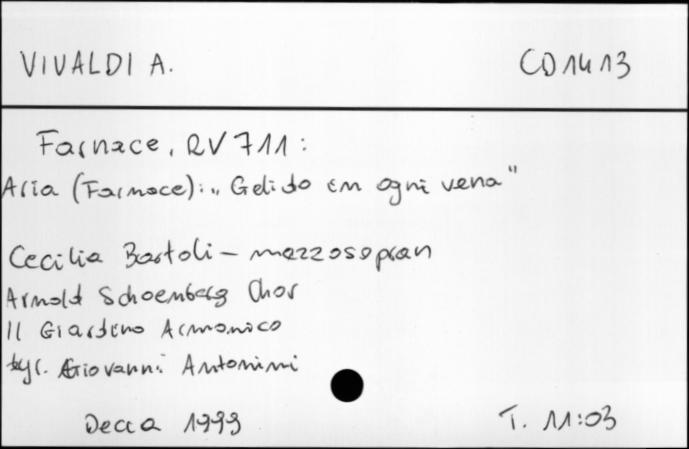 VIVALDI A. CD1413
Farnace, RV 711:
Aria (Farnace): „Gelido in ogni vena"
Cecilia Bartoli – mezzosopran
Arnold Schoenberg Chor
Il Giardino Armonico
dyr. Giovanni Antonini
Decca 1999 T. 11:03